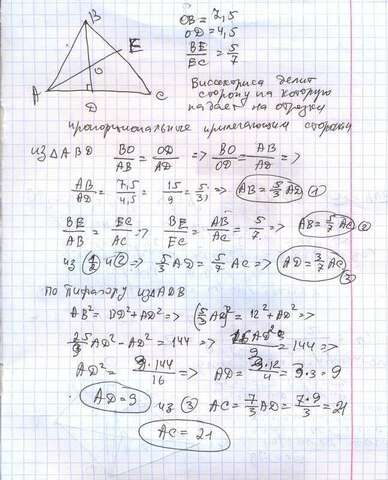 B
E
O
A
D
C
OB = 7,5
OD = 4,5
BE/EC = 5/7
Биссектриса делит
сторону на которую
падает на отрезки
пропорциональные прилегающим сторонам
из △ABD BO/AB = OD/AD => BO/OD = AB/AD =>
AB/AD = 7,5/4,5 = 15/9 = 5/3 => AB = 5/3 AD ①
BE/AB = EC/AC => BE/EC = AB/AC = 5/7 => AB = 5/7 AC ②
из ① и ② => 5/3 AD = 5/7 AC => AD = 3/7 AC ③
по Пифагору из ADB
AB² = BD² + AD² => (5/3 AD)² = 12² + AD² =>
25/9 AD² - AD² = 144 => 16AD²/9 = 144 =>
AD² = 9·144/16 => AD = 3·12/4 = 3·3 = 9
AD = 9 из ③ AC = 7/3 AD = 7*9/3 = 21
AC = 21